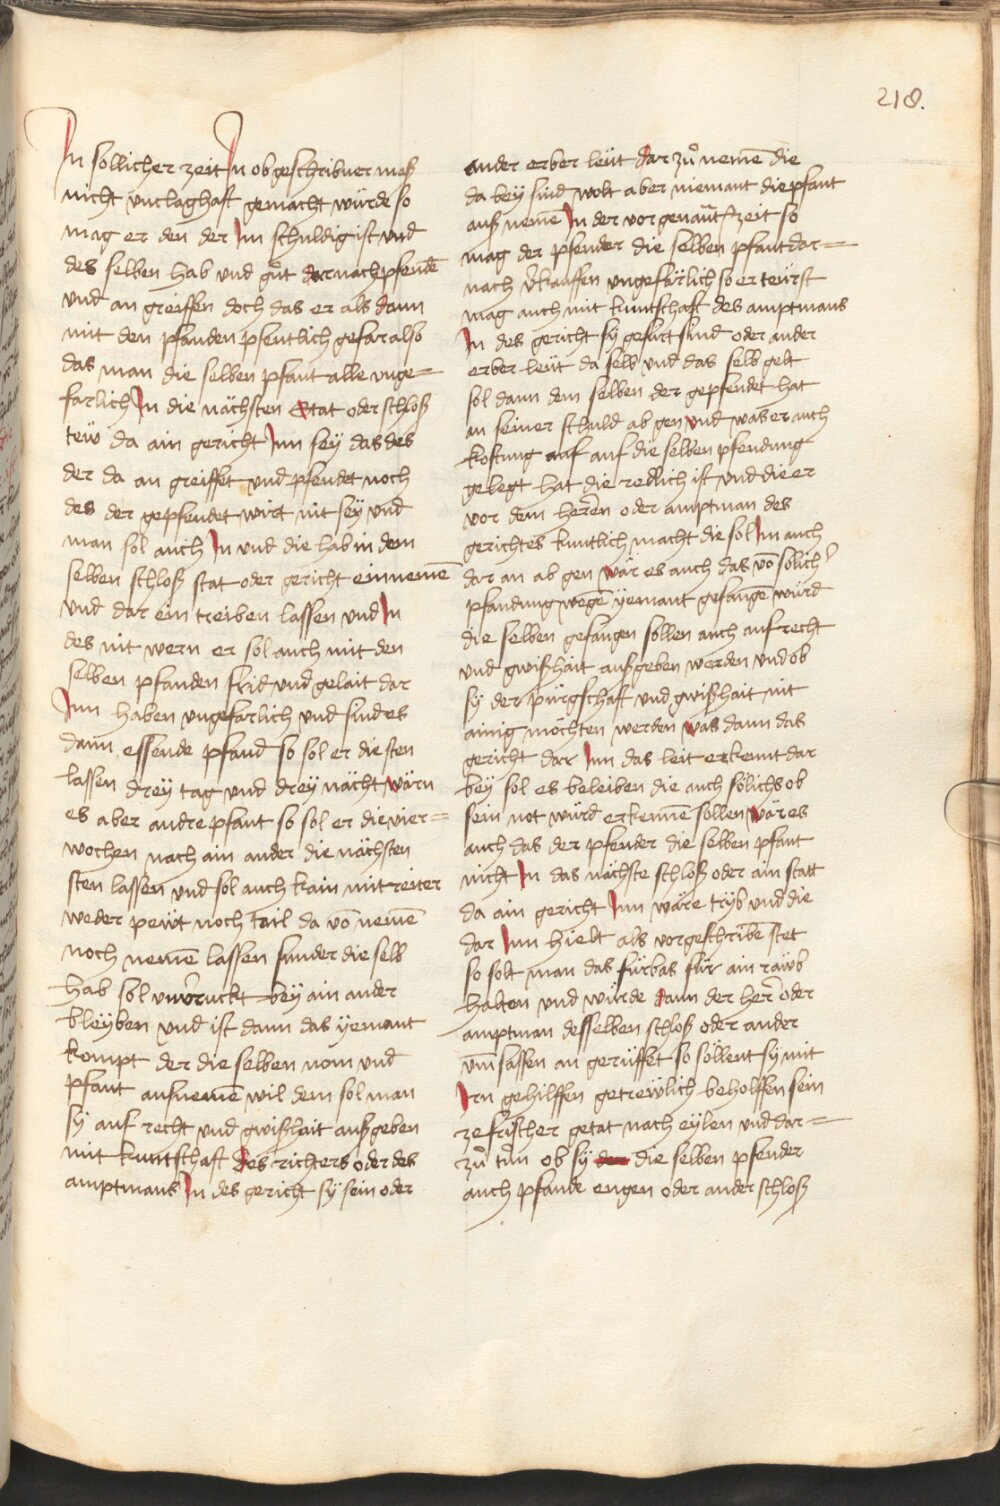 218.
In sollicher zeit In obgeschribner maß
nicht vnclaghaft gemacht würde so
mag er den der Im schuldig ist vnd
des selben hab vnd gůt darnach pfendē
vnd an greiffen doch das er als dann
mit den pfanden pfentlich gefar also
das man die selben pfant alle vnge=
farlich In die nächsten stat oder schloß
teü da ain gericht Inn sey das des
der da an greiffet vnd pfendet noch
des der gepfendet wirt nit sey vnd
man sol auch In vnd die hab in dem
selben schloß stat oder gericht ein nemē
vnd dar ein treiben lassen vnd In
des nit wern er sol auch mit den
selben pfanden frid vnd gelait dar
Inn haben vngefarlich vnd sind es
dann essende pfand so sol er die sten
lassen drey tag vnd drey nächt wärn
es aber andre pfant so sol er die vier=
wochen nach ain ander die nächsten
sten lassen vnd sol auch kain mitreiter
weder pewt noch tail da vō nemē
noch nemē lassen sunder die selb
hab sol vnv̄ruckt bey ain ander
bleyben vnd ist dann das yemant
kompt der die selben nom vnd
pfant aufnemē wil dem sol man
sy auf recht vnd gwißhait außgeben
mit kuntschaft des richters oder des
amptmans In des gericht sy sein oder
ander erber leüt dar zů nemē die
da bey sind wolt aber niemant die pfant
auß nemē In der vorgenantē zeit so
mag der pfender die selben pfant dar=
nach v̄kauffen vngefärlich so er teürst
mag auch mit kuntschaft des amptmans
In des gericht sy gefürt sind oder ander
erber leüt da selb vnd das selb gelt
sol dann dem selben der gepfendet hat
an seiner schuld ab gen vnd was er auch
kostung auf auf die selben pfendung
gelegt hat die redlich ist vnd die er
vor dem herrēn oder amptman des
gerichtes kuntlich macht die sol Im auch
dar an ab gen wär es auch das vō solich̄
pfandung wegē yemant gefangē würd
die selben gefangen sollen auch auf recht
vnd gwißhait außgeben werden vnd ob
sy der pürgschaft vnd gwißhait nit
ainig möchten werden was dann das
gericht dar Inn das leit erkennt dar
bey sol es beleiben die auch sölichs ob
sein not würd erkennē sollen wär es
auch das der pfender die selben pfant
nicht In das nächste schloß oder ain statt
da ain gericht Inn wäre tryb vnd die
dar Inn hielt als vorgeschribē stet
so solt man das fürbas für ain rawb
halten vnd würde dann der herr oder
amptman desselben schloß oder ander
vm̄sassen an gerüffet so söllent sy mit
Irn gehilffen getrewlich beholffen sein
ze frischer getat nach eylen vnd dar=
zů tůn ob sy die selben pfender
auch pfande engen oder ander schloß